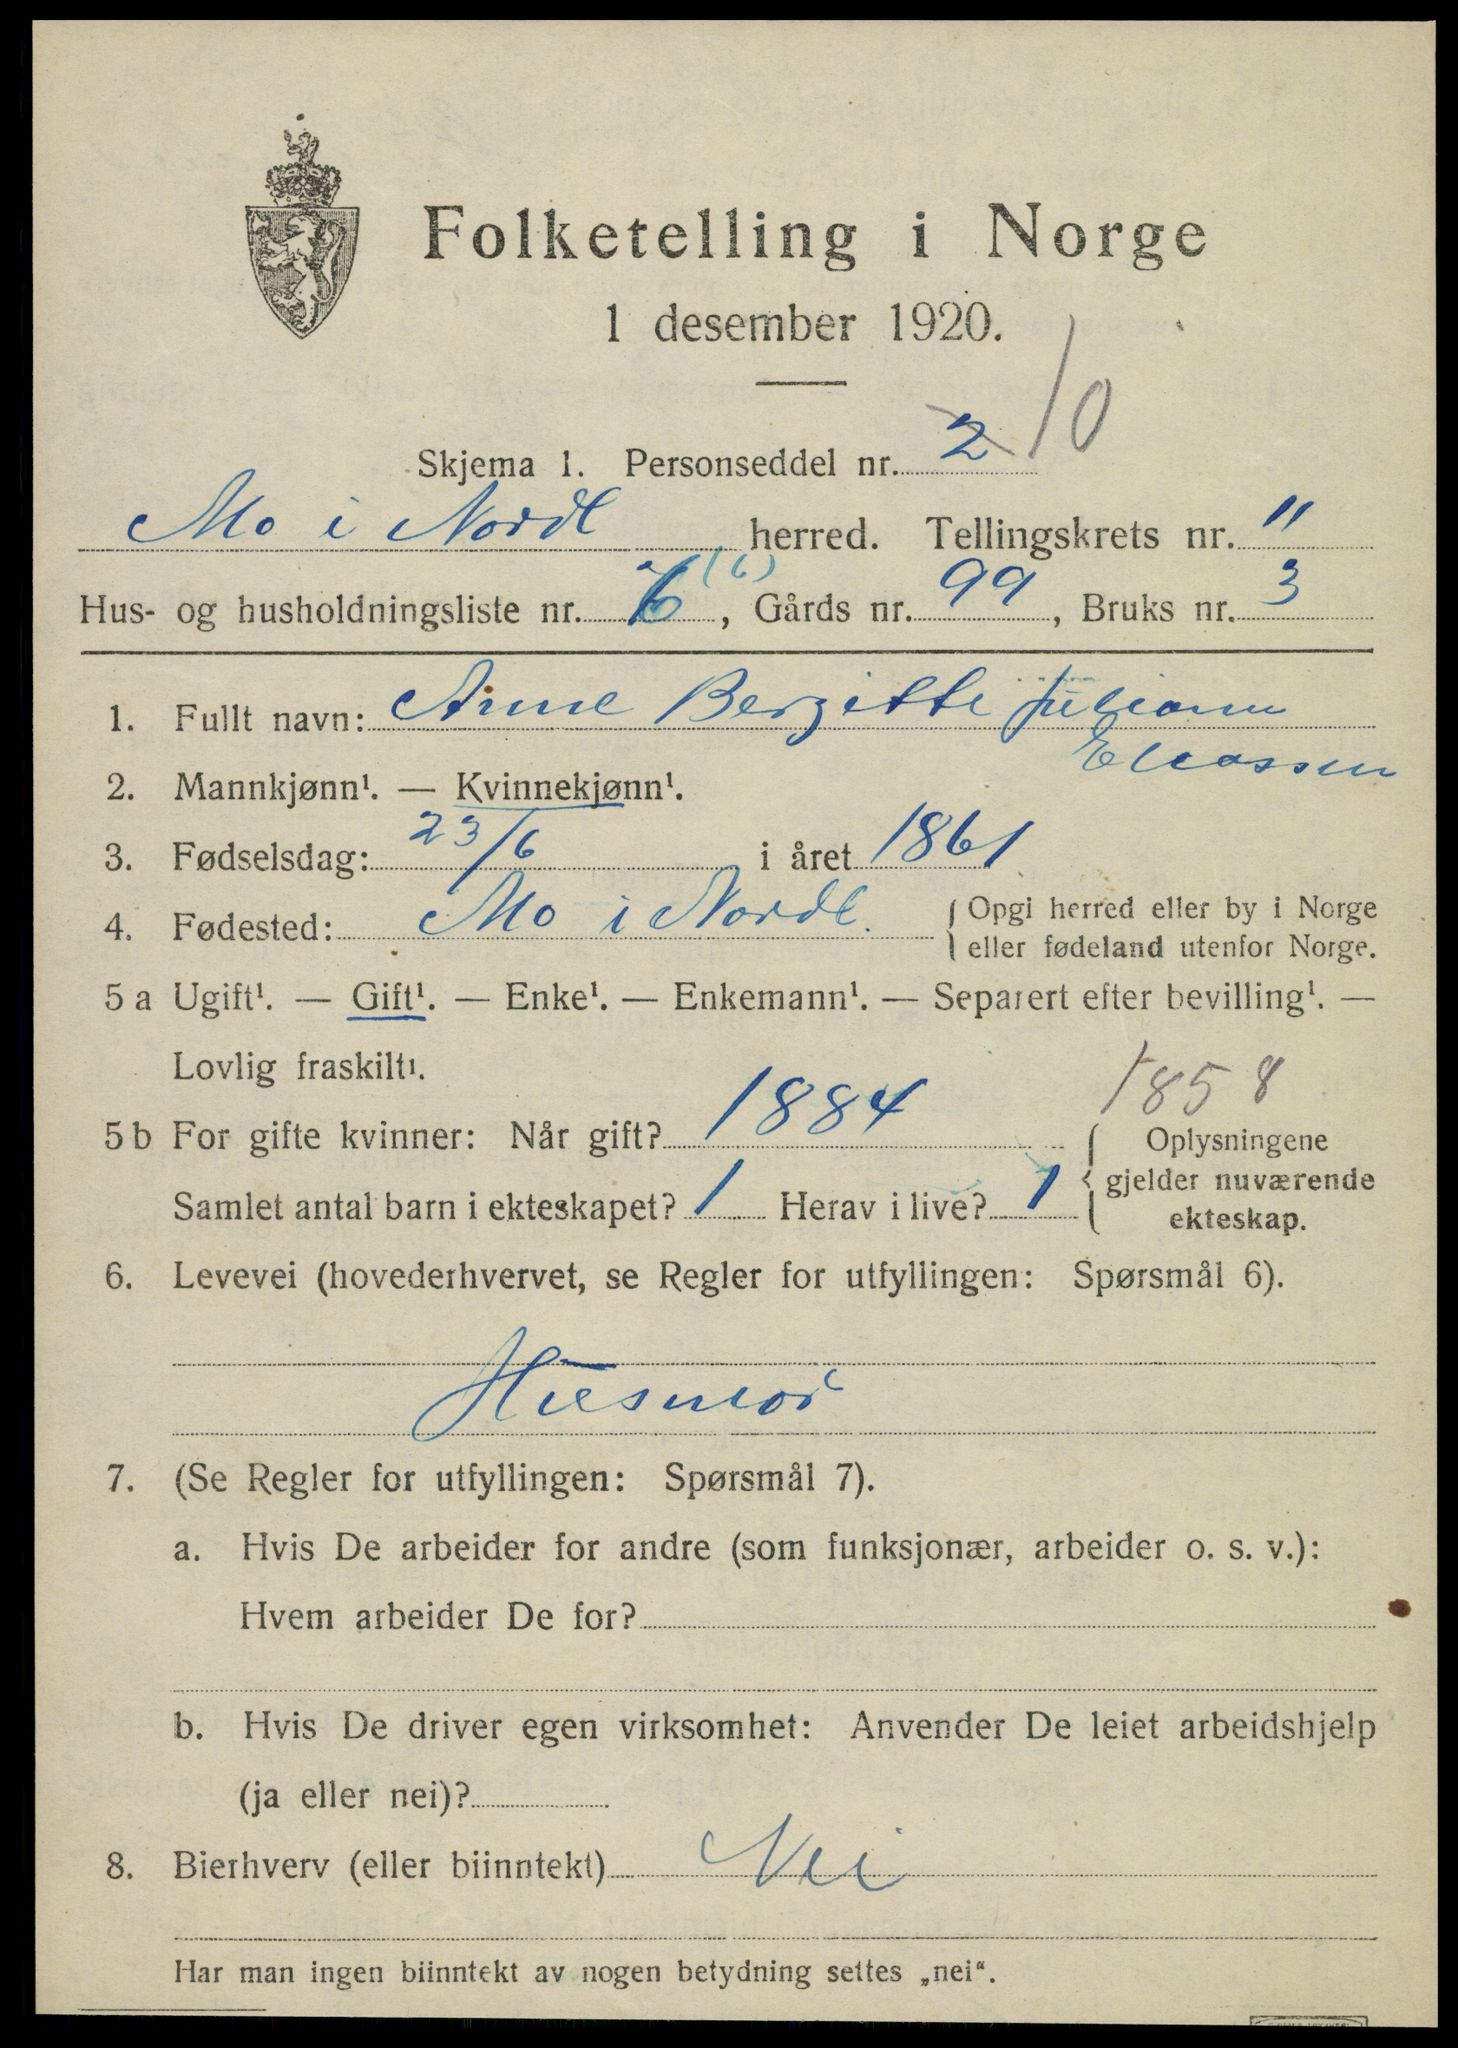 Folketelling i Norge
1 desember 1920.
Skjema 1. Personseddel nr. 2 10
Mo i Nordl herred. Tellingskrets nr. 11
Hus- og husholdningsliste nr. 6 (6), Gårds nr. 99, Bruks nr. 3
1. Fullt navn: Anne Bergitte Juliane
Eliassen
2. Mannkjønn¹. — Kvinnekjønn¹.
3. Fødselsdag: 23/6 i året 1861
4. Fødested: Mo i Nordl. { Opgi herred eller by i Norge
eller fødeland utenfor Norge.
5 a Ugift¹. — Gift¹. — Enke¹. — Enkemann¹. — Separert efter bevilling¹. —
Lovlig fraskilt¹.
1858
5 b For gifte kvinner: Når gift? 1884 { Oplysningene
gjelder nuværende
ekteskap.
Samlet antal barn i ekteskapet? 1 Herav i live? 1
6. Levevei (hovederhvervet, se Regler for utfyllingen: Spørsmål 6).
Husmor
7. (Se Regler for utfyllingen: Spørsmål 7).
a. Hvis De arbeider for andre (som funksjonær, arbeider o. s. v.):
Hvem arbeider De for?
b. Hvis De driver egen virksomhet: Anvender De leiet arbeidshjelp
(ja eller nei)?
8. Bierhverv (eller biinntekt) Nei
Har man ingen biinntekt av nogen betydning settes „nei“.